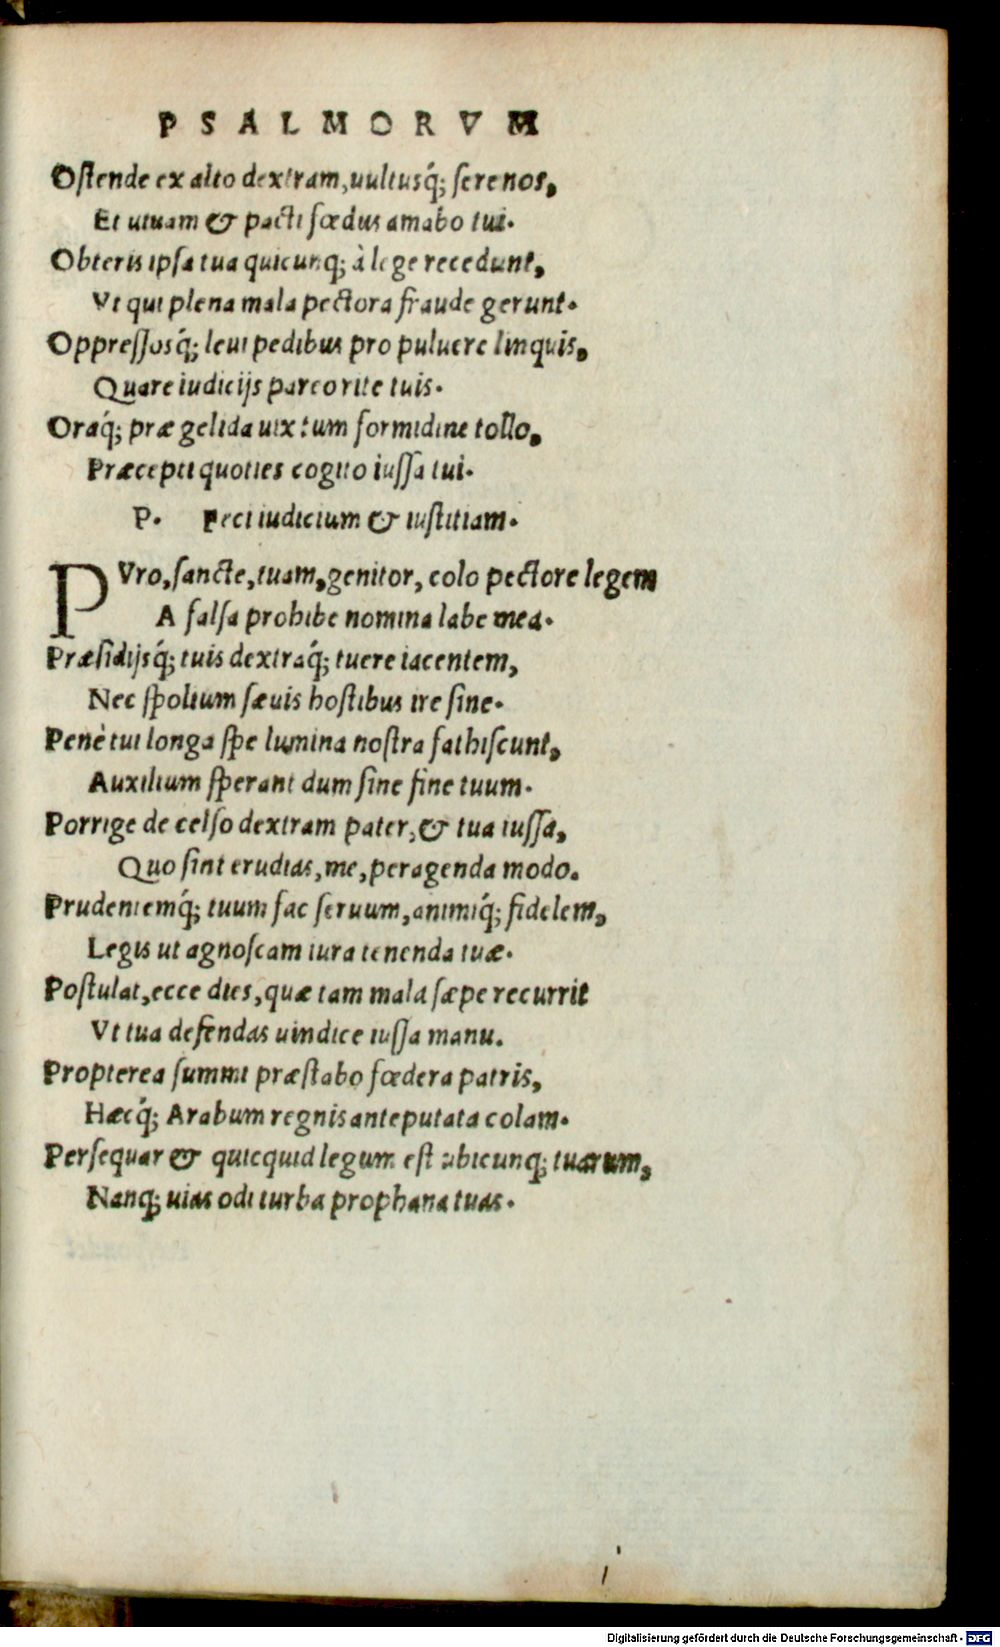 PSALMORVM
Oſtende ex alto dextram, uultusq́; ſerenos,
Et uiuam & pacti fœdus amabo tui.
Obteris ipſa tua quicunq; à lege recedunt,
Vt qui plena mala pectora fraude gerunt.
Oppreſſosq́; leui pedibus pro puluere linquis,
Quare iudicijs pareo rite tuis.
Oraq́; præ gelida uix tum formidine tollo,
Præcepti quoties cogito iuſſa tui.
P. Feci iudicium & iuſtitiam.
PVro, ſancte, tuam, genitor, colo pectore legem
A falſa prohibe nomina labe mea.
Præſidijsq́; tuis dextraq́; tuere iacentem,
Nec ſpolium ſæuis hoſtibus ire ſine.
Penè tui longa ſpe lumina noſtra fathiſcunt,
Auxilium ſperant dum ſine fine tuum.
Porrige de celſo dextram pater, & tua iuſſa,
Quo ſint erudias, me, peragenda modo.
Prudentemq́; tuum fac ſeruum, animiq́; fidelem,
Legis ut agnoſcam iura tenenda tuæ.
Poſtulat, ecce dies, quæ tam mala ſæpe recurrit
Vt tua defendas uindice iuſſa manu.
Propterea ſummi præſtabo fœdera patris,
Hæcq́; Arabum regnis anteputata colam.
Perſequar & quicquid legum eſt ubicunq; tuarum,
Nanq; uias odi turba prophana tuas.
i
Digitalisierung gefördert durch die Deutsche Forschungsgemeinschaft - DFG